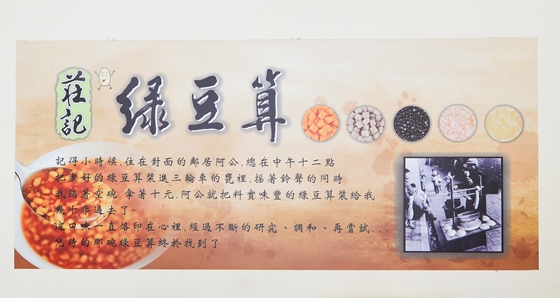 莊記
綠豆算
記得小時候,住在對面的鄰居阿公,總在中午十二點
把煮好的綠豆算裝進三輪車的甕裡,搖著鈴聲的同時
我端著空碗,拿著十元,阿公就把料實味豐的綠豆算裝給我
幾十年過去了~
這回味一直烙印在心裡,經過不斷的研究、調和、再嘗試...
兒時的那碗綠豆算終於找到了